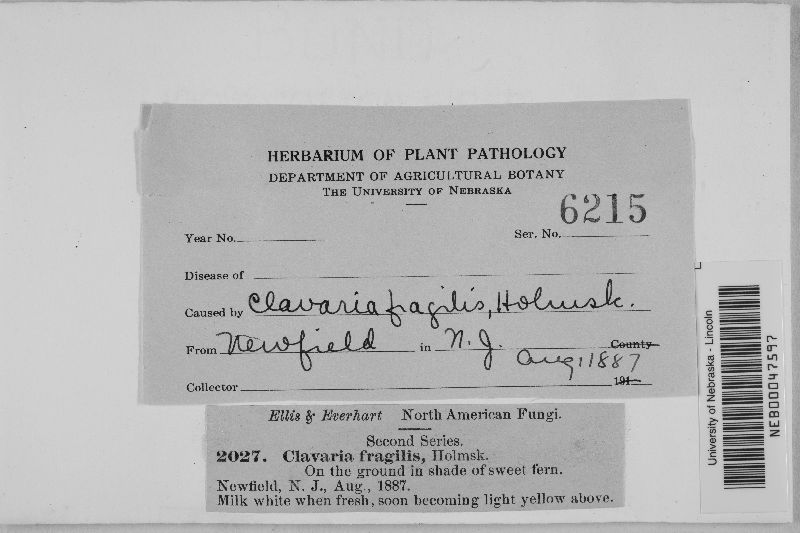 HERBARIUM OF PLANT PATHOLOGY
DEPARTMENT OF AGRICULTURAL BOTANY
THE UNIVERSITY OF NEBRASKA
6215
Year No. Ser. No.
Disease of
Caused by Clavaria fragilis, Holmsk.
From Newfield in N. J. County
Aug, 1887
Collector 191
Ellis & Everhart North American Fungi.
Second Series.
2027. Clavaria fragilis, Holmsk.
On the ground in shade of sweet fern.
Newfield, N. J., Aug., 1887.
Milk white when fresh, soon becoming light yellow above.
University of Nebraska - Lincoln
NEB00047597